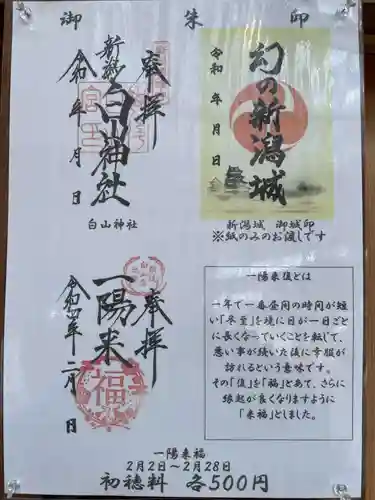 御朱印
奉拝
新潟
白山神社
令和 年 月 日
白山神社
幻の新潟城
令和 年 月 日
新潟城 御城印
※紙のみのお渡しです
奉拝
一陽来
福
令和四年二月 日
一陽来復とは
一年で一番昼間の時間が短
い「冬至」を境に日が一日ごと
に長くなっていくことを転して、
悪い事が続いた後に幸服
が訪れるという意味です。
その「復」を「福」とあて、さらに
縁起が良くなりますように
「来福」としました。
一陽来福
2月2日～2月28日
初穂料 各500円